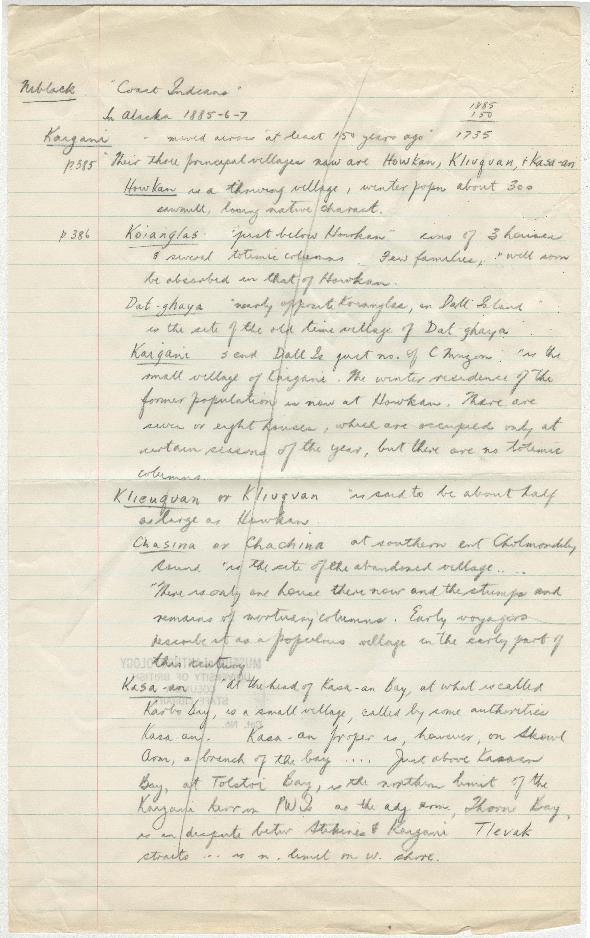 Niblack "Coast Indians"
In Alaska 1885-6-7 1885
150
Kaigani - moved across "at least 150 years ago" 1735
p.385 "Their three principal villages now are Howkan, Klinquan, & Kasa-an
Howkan is a thriving village, winter popn about 300
sawmill, losing native charact.
p 386 Koianglas "just below Howkan" cons of 3 houses
& several totemic columns Few families, "will soon
be absorbed in that of Howkan.
Dat-ghaya "nearly opposite Koianglas, on Dall Island"
is the site of the old time village of Dat ghaya"
Kaigani s end Dall Is just no. of C Muzon. "is the
small village of Kaigani. The winter residence of the
former population is now at Howkan. There are
seven or eight houses, which are occupied only at
certain seasons of the year, but there are no totemic
columns.
Klinquan or "is said to be about half
as large as Howkan.
Chasina or Chachina at southern ent Cholmondeley
Sound "is the site of the abandoned village....
"There is only one house there now and the stumps and
remains of mortuary columns. Early voyagers
describe it as a populous village in the early part of
this century
Kasa-an "At the head of Kasa-an Bay, at what is called
Karta Bay, is a small village, called by some authorities
Kasa-an. Kasa-an proper is, however, on Skowl
Arm, a branch of the bay .... Just above Kasaan
Bay, at Tolstoi Bay, is the northern limit of the
Kaigani here on PWIs as the adj arm, Thorn Bay,
is in dispute betw Stikines & Kaigani Tlevak
straits ... is n. limit on w. shore.